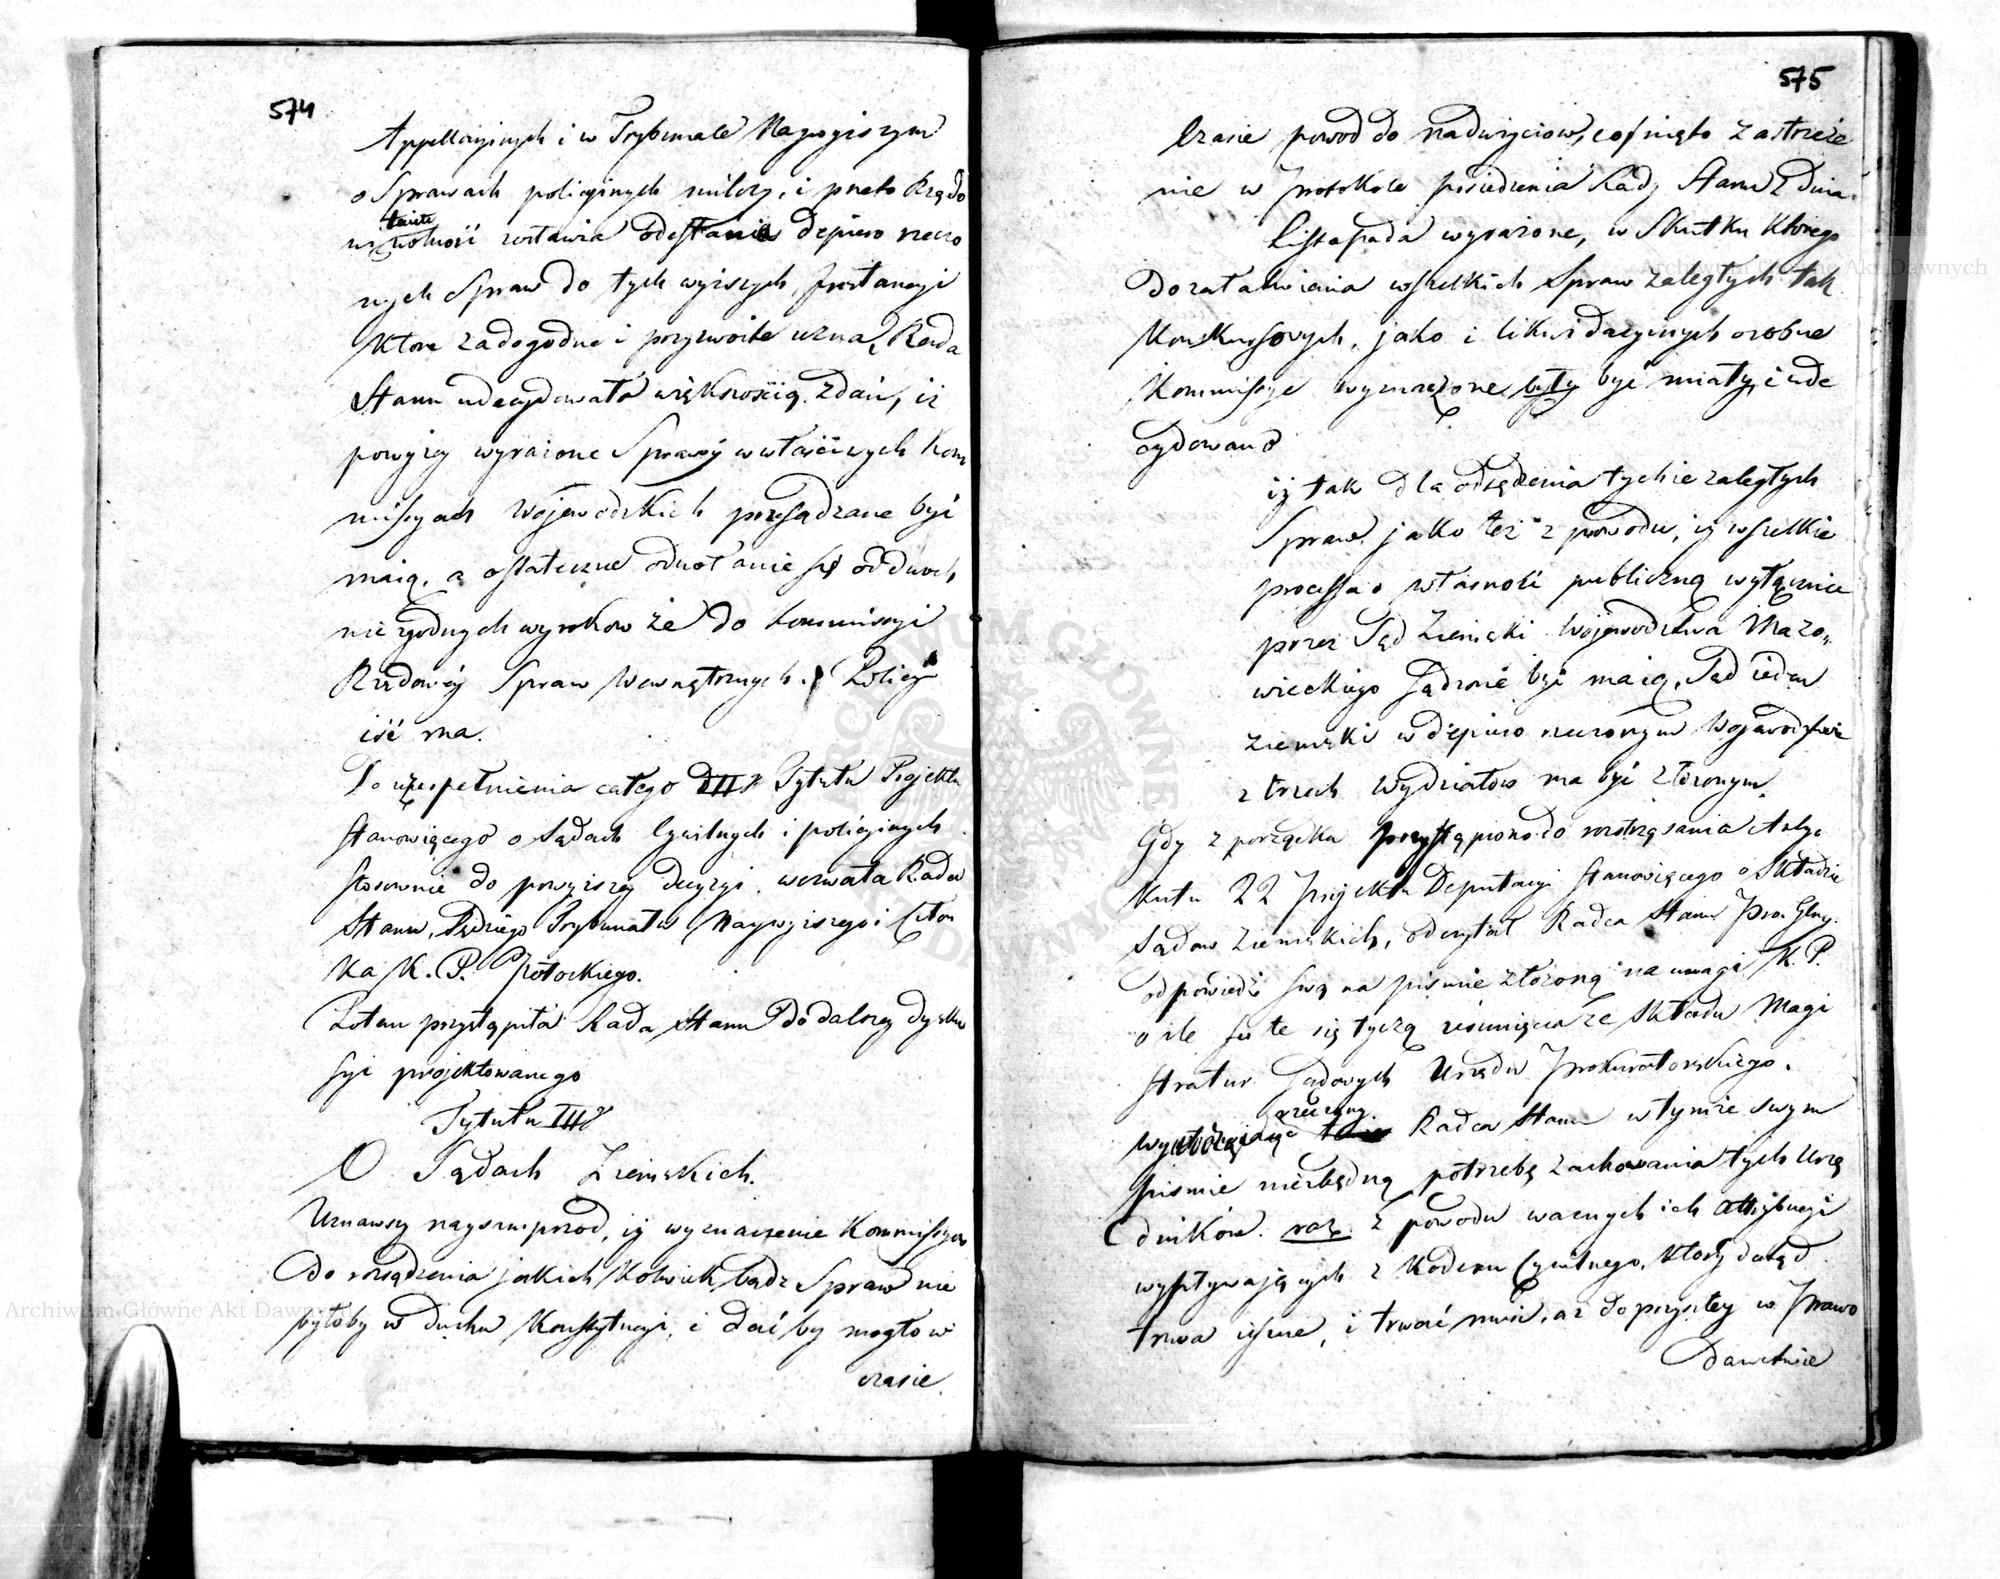 574
Appellacyinych i w Trybunale Naywyższym
o Sprawach policyinych milczy, i przeto Rządo
wi wolność zostawia odesłania dopiero rzeczo
nych Spraw do tych wyższych Instancyi
które za dogodne i przyzwoite uzna, Rada
Stanu udecydowała większością zdań, iż
powyżey wyrażone Sprawy w właściwych Kom
missyach Wojewodzkich przesądzane być
maią, a ostateczne odwołanie się od dwóch
niezgodnych wyrokow że do Kommissyi
Rządowéy Spraw Wewnętrznych i Policyi
iść ma.
Do uzupełnienia całego II Tytułu Projektu
stanowiącego o Sądach Cywilnych i policyinych
stosownie do powyższey decyzyi, wezwała Rada
Stanu, Sędziego Trybunału Naywyższego i Człon
ka K. P. Potockiego.
Potem przystąpiła Rada Stanu do dalszey dysku
syi projektowanego
Tytułu III
O Sądach Ziemskich.
Uznawszy nayprzod, iż wyznaczenie Kommissyow
do rozsądzenia jakich kolwiek bądz Spraw nie
byłoby w duchu Konstytucyi, i dać by mogło w
czasie
575
Czasie powod do nadużyciow, cofnięto zastrzeże
nie w protokole posiedzenia Rady Stanu z dnia
Listopada wyrażone, w Skutku którego
do załatwienia wszelkich Spraw zaległych tak
Konkursowych, jako i likwidacyinych osobne
Kommissye wyznaczone były być miały, i ude
cydowano
iż tak dla odsądzenia tychże zaległych
Spraw jako też z powodu, iż wszelkie
processa o własność publiczną wyłącznie
przez Sąd Ziemski Wojewodztwa Mazo„
wieckiego Sądzone być maią, Sąd ieden
ziemski w dopiero rzeczonym Wojewodztwie
z trzech Wydziałow ma być złożonym.
Gdy z porządku przystąpiono do roztrząsania Arty„
kułu 22 Projektu Deputacyi stanowiącego o Składzie
Sądow Ziemskich, odczytał Radca Stanu Pro. Glny.
odpowiedź swą na pismie złożoną na uwagi K. P.
o ile się te się tyczą usunięcia ze Składu Magi
stratur Sądowych Urzędu Prokuratorskiego.
rzeczony.
Radca Stanu w tymże swym
pismie niezbędną potrzebę zachowania tych Urzę
dników. raz. z powodu ważnych ich Attrybucyi
wypływających z Kodexu Cywilnego, który dotąd
trwa ieszcze, i trwać musi, aż do przyszłey w Prawo
dawctwie